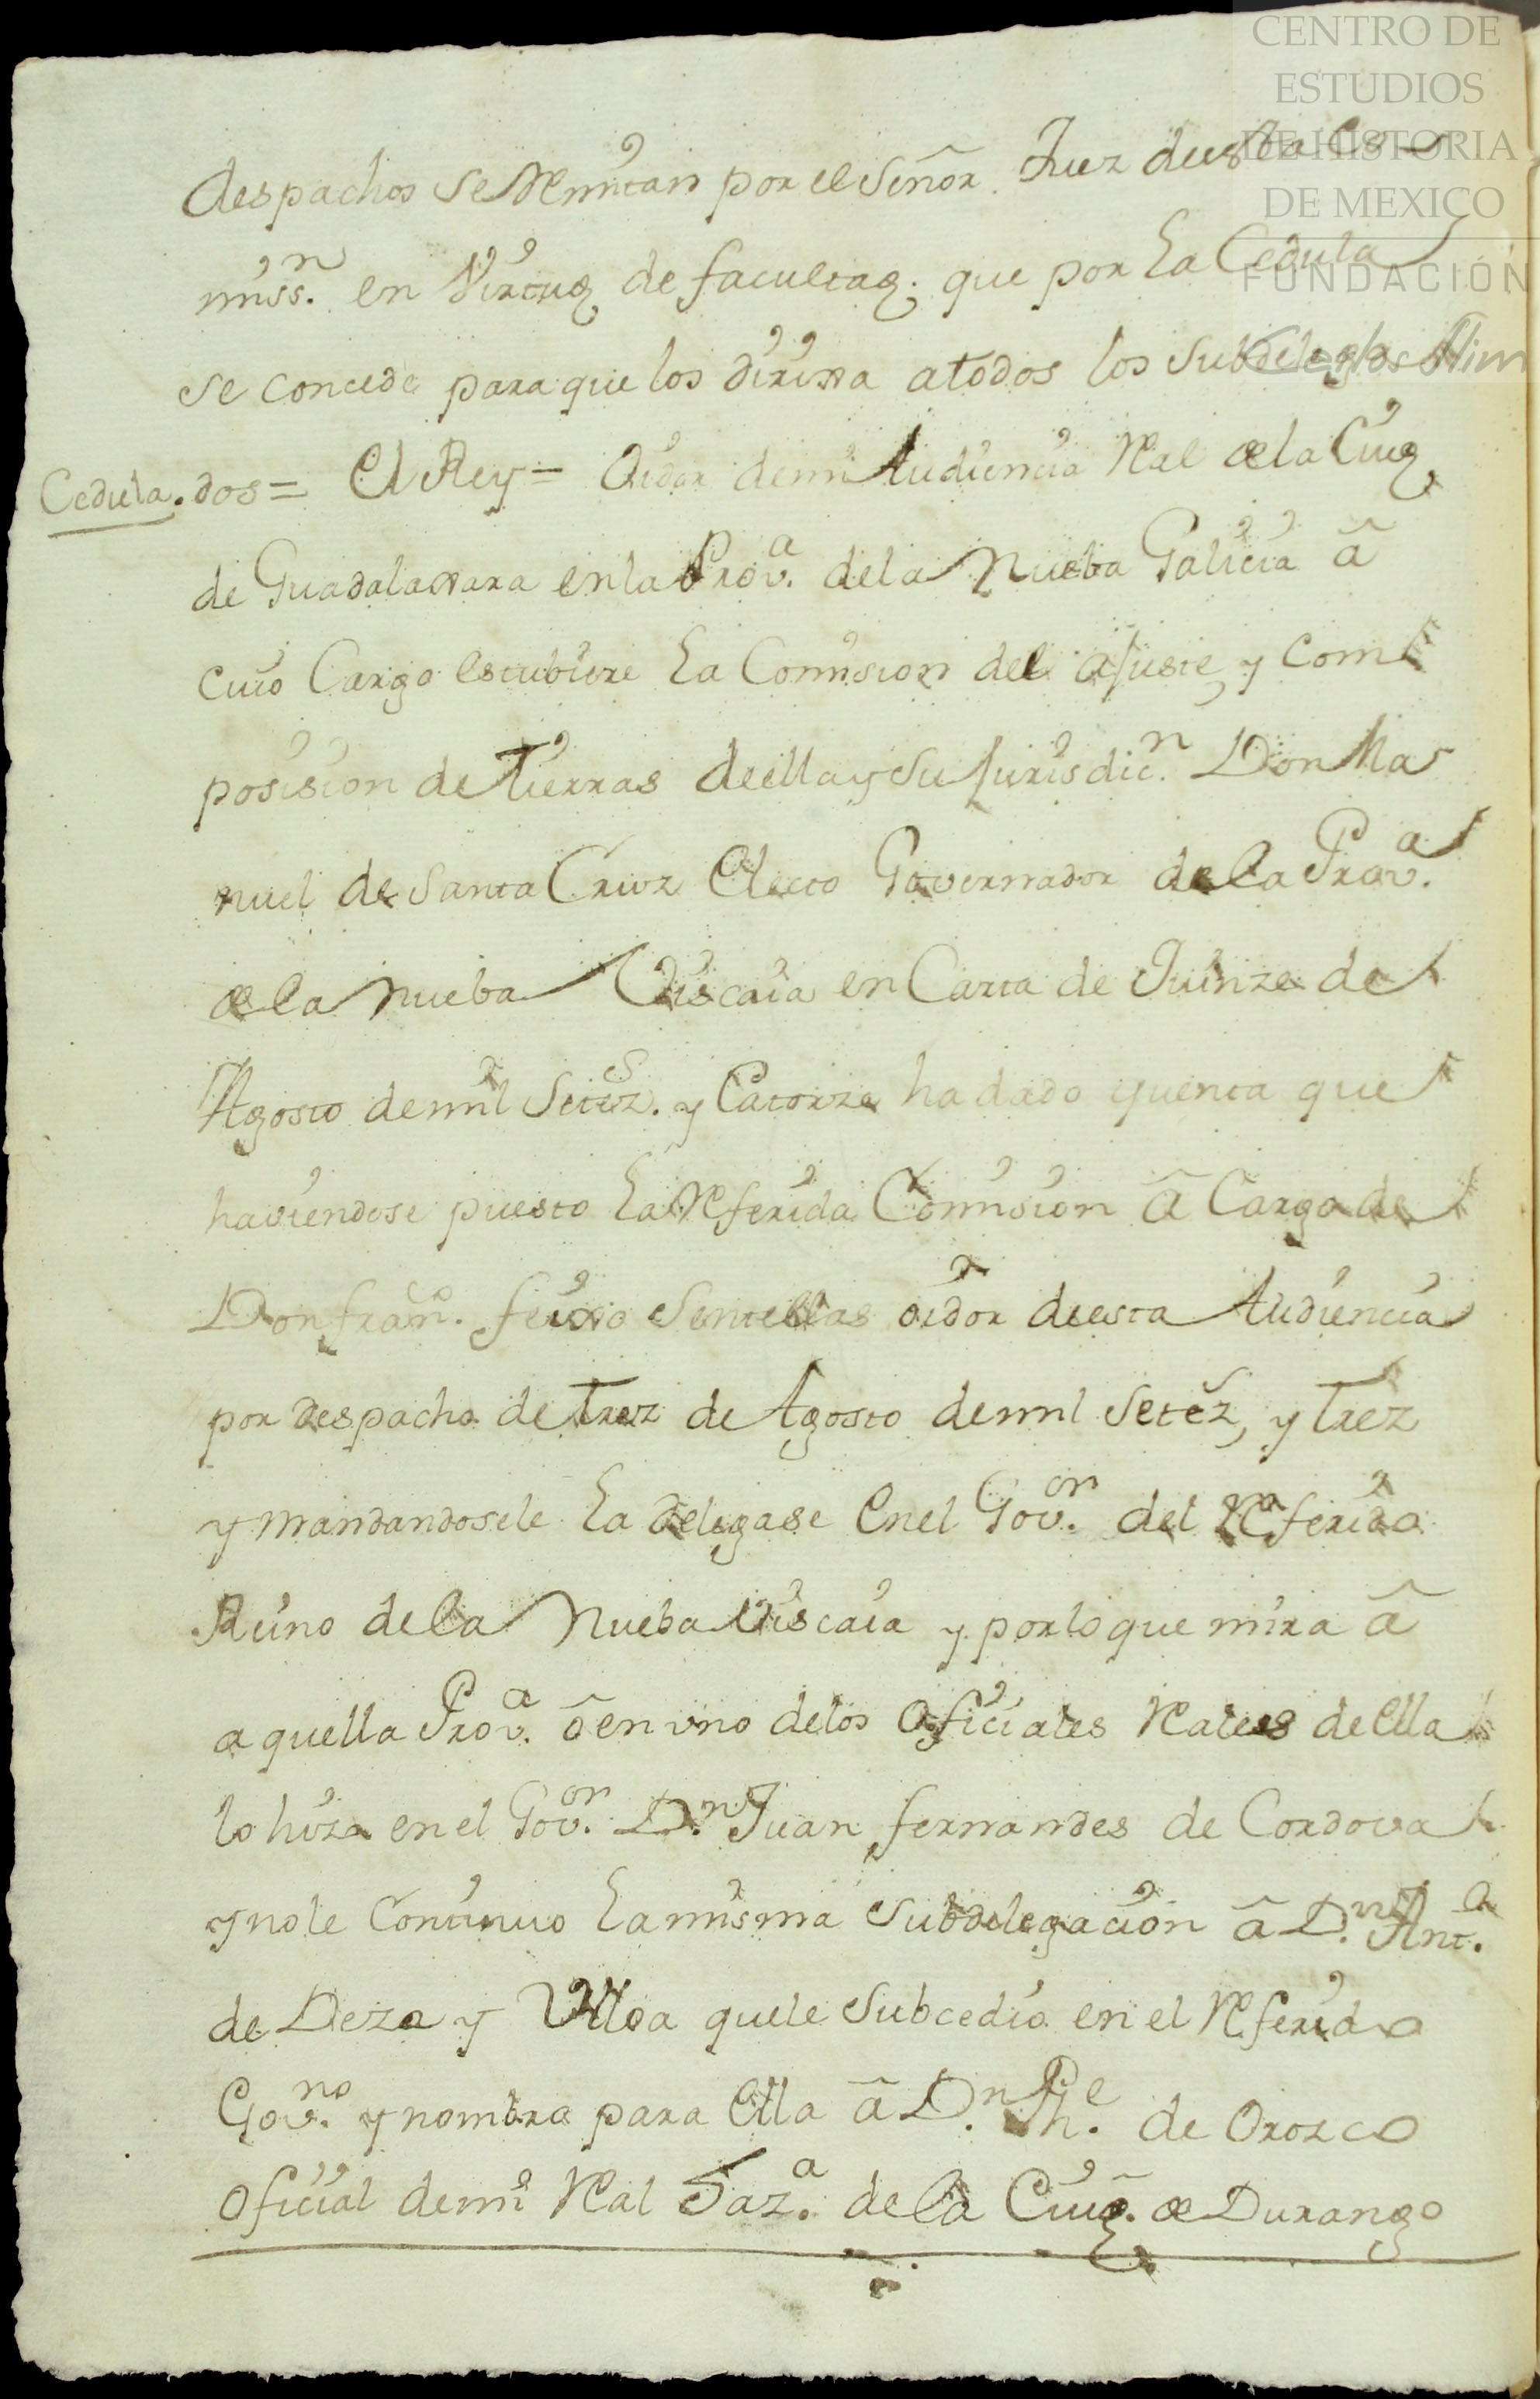 CENTRO DE
ESTUDIOS
DE HISTORIA
DE MEXICO
FUNDACIÓN
despachos se Remitan por el Señor Juez de esta Co
miss.n en Virtud de facultad. que por la Cedula
se concede para que los dirixa a todos los Subdelega
Cedula. dos = El Rey = Oidor de mi Audiencia Real de la Ciud
de Guadalaxara en la Prov.a de la Nueba Galicia â
cuio Cargo estubiere la Comision del ajuste y com
posision de Tierras de ella y su jurisdic.n Don Ma
nuel de Santa Cruz Electo Governador de la Prov.a
de la Nueba Viscaia en Carta de Quinze de
Agosto de mil Setez.s y Catorze ha dado quenta que
haviendose puesto la Referida Comision â Cargo de
Don fran.co feixo Sentellas oidor de esta Audiencia
por despacho de Trez de Agosto de mil Setez.s y trez
y mandandosele la delegase en el Gov.or del Referido
Reino de la Nueba Viscaia y por lo que mira â
aquella Prov.a ô en uno de los Oficiales Reales de ella
lo hizo en el Gov.or D.n Juan fernandes de Cordova
y no le Continuo la misma Subdelegacion â D.n Ant.o
de Deza y Ulloa que le Subcedio en el Referido
Gov.no y nombra para ella â D.n Ph.e de Orozco
Oficial de mi Real Caz.a de la Ciud. de Durango